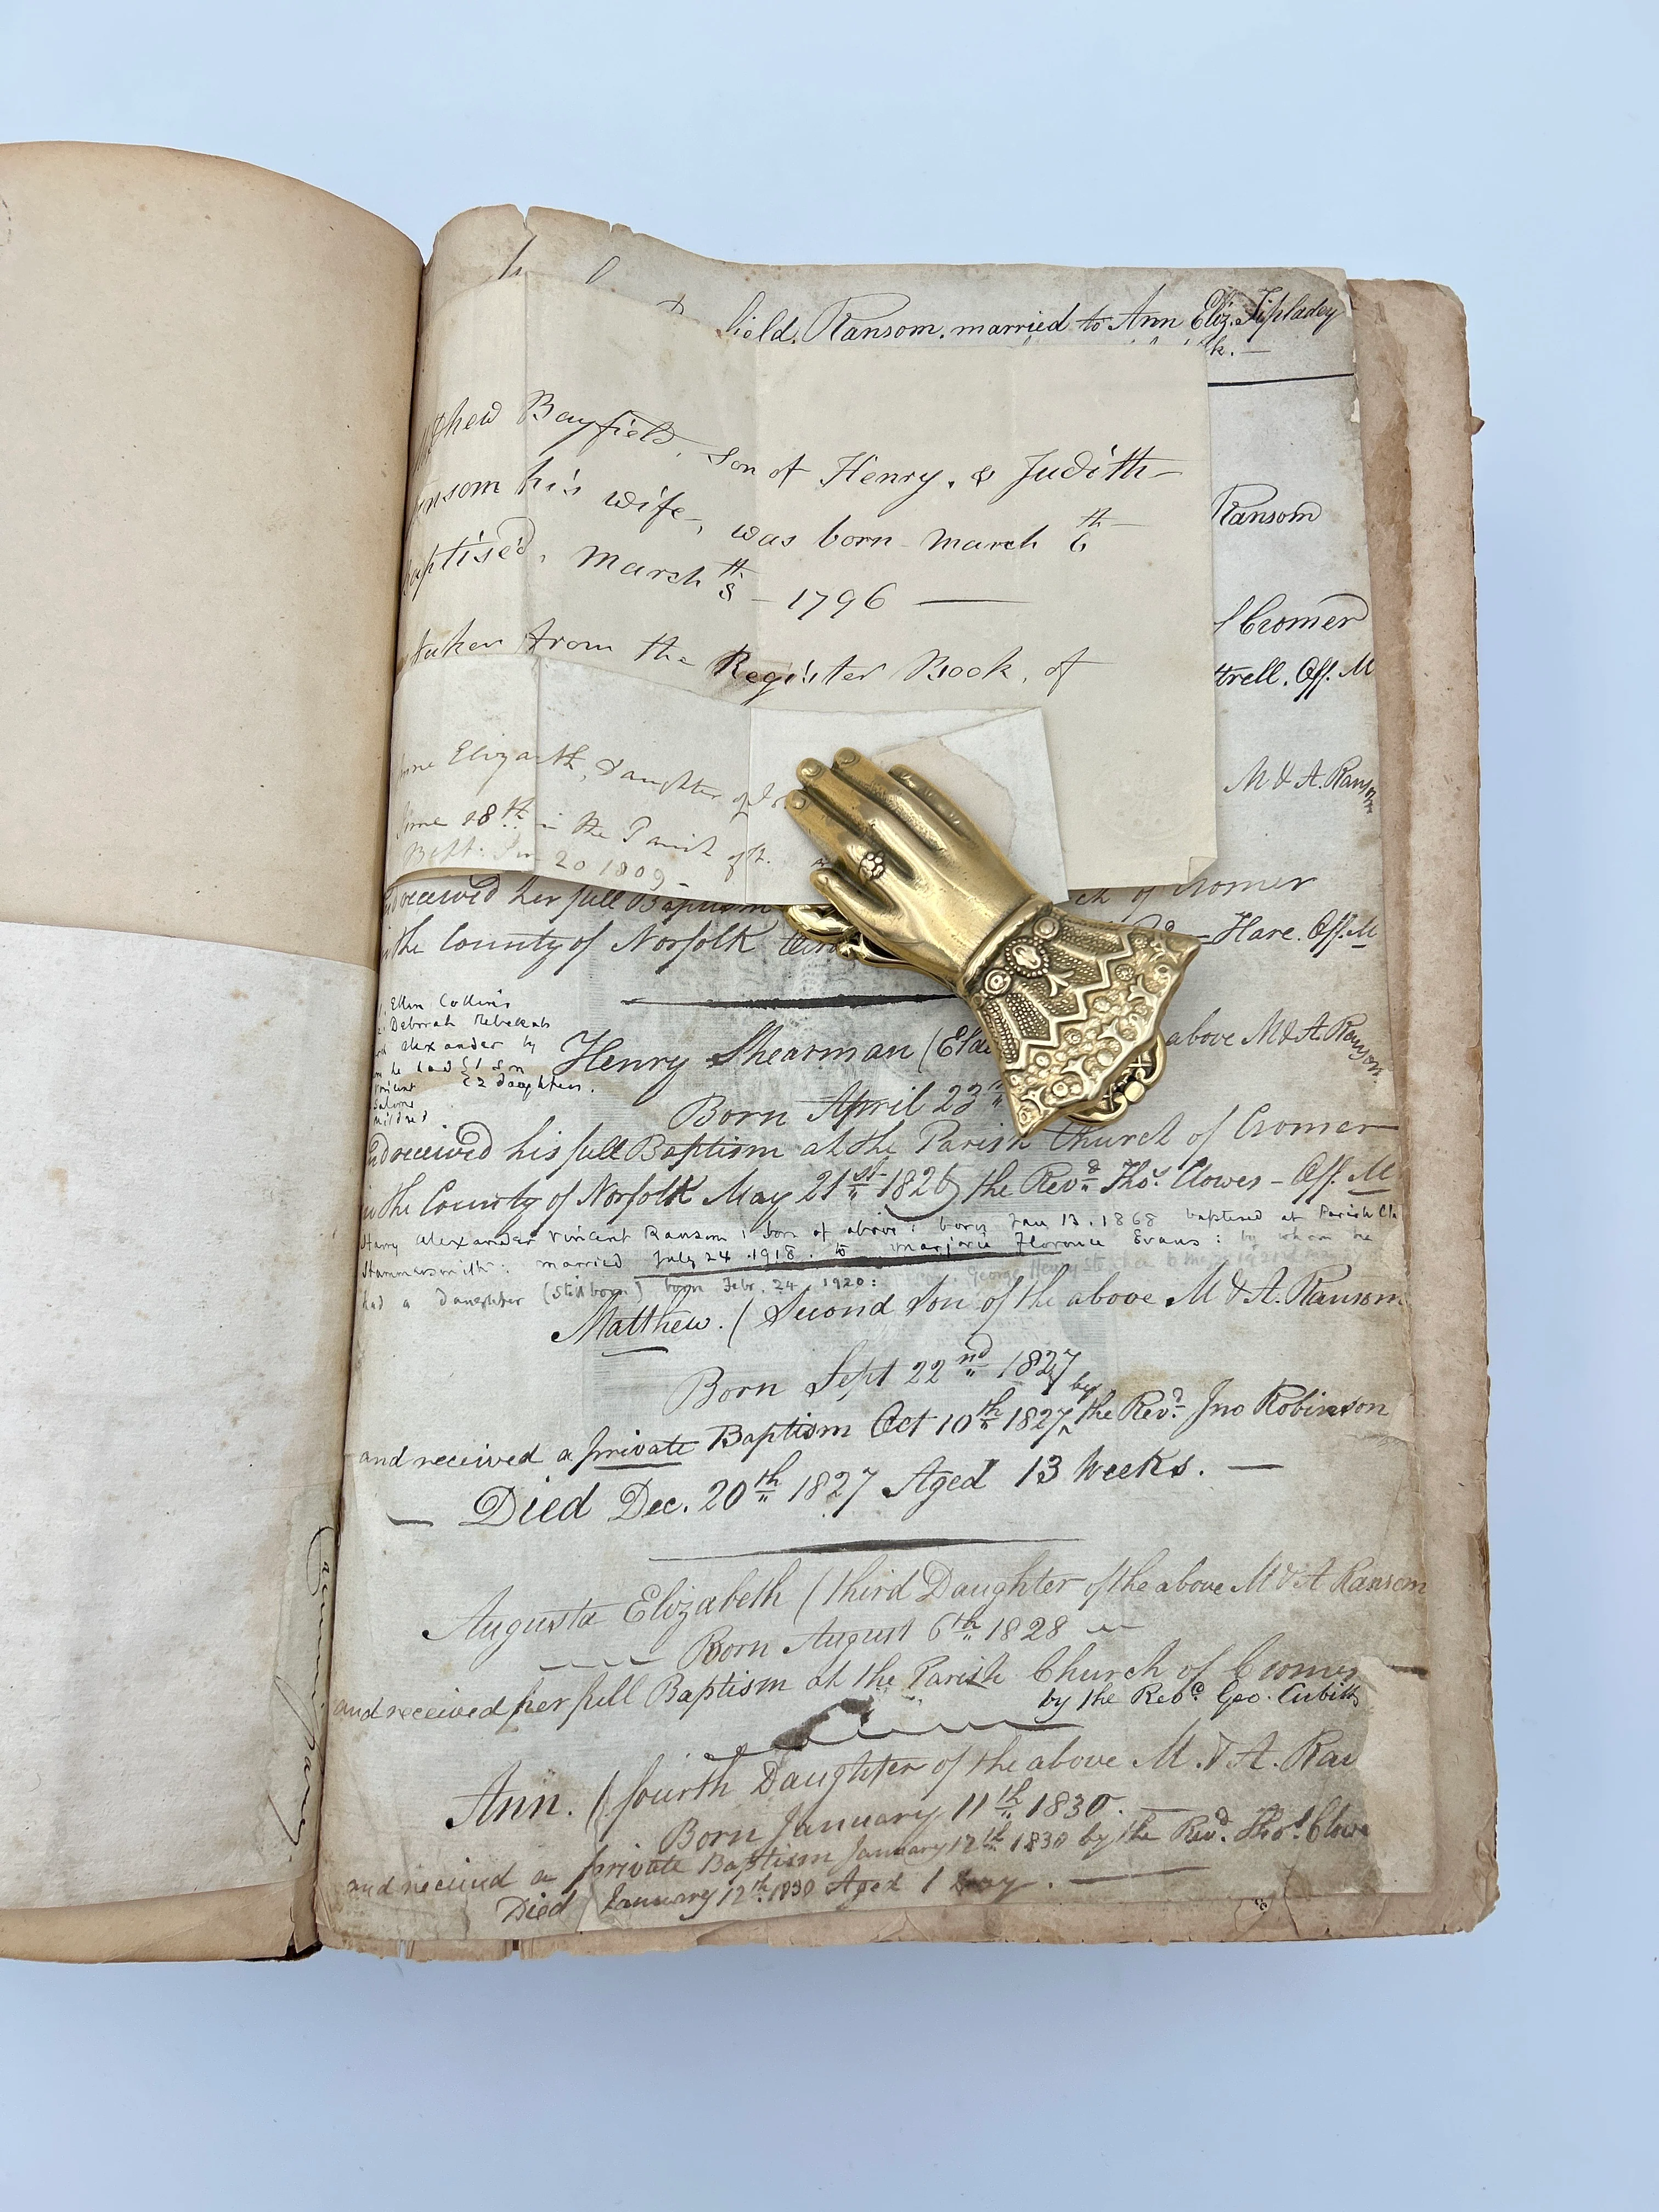 field. Ransom. married to Ann Eliz. Tiplady
Bayfield, son of Henry, & Judith
his wife, was born March 6th
March 8th 1796
taken from the Register Book, of
Ransom
Cromer
Off. M
M & A. Ransom
Elizabth, daughter of
June 18th in the Parish of
Bapt. 20 1809
received her full Baptism
ch of Cromer
in the County of Norfolk
Hare. Off. M
Ellen Collins
Deborah Rebekah
alexander by
he had 1 son
2 daughters.
Vincent
Salome
Mildred
Henry Shearman (Elde
above M & A. Ransom.
Born April 23
and received his full Baptism at the Parish Church of Cromer
in the County of Norfolk May 21st 1826) the Revd. Thos. Clowes - Off. M
Harry Alexander Vincent Ransom: son of above: born Jan 13. 1868 baptised at Parish Ch
Hammersmith: married July 24. 1918. to Marjorie Florence Evans: by whom he
had a daughter (stillborn) born Febr. 24 1920:
Matthew. (Second Son of the above M & A. Ransom
Born Sept 22nd 1827
and received a private Baptism Oct 10th 1827 by the Revd. Jno Robinson
Died Dec. 20th 1827 Aged 13 Weeks.
Augusta Elizabeth (third Daughter of the above M & A Ransom
Born August 6th 1828
and received her full Baptism at the Parish Church of Cromer
by the Revd. Geo. Cubitt
Ann. (fourth Daughter of the above M. & A. Ran
Born January 11th 1830.
and received a private Baptism January 12th 1830 by the Revd. Thos. Clowe
Died January 12th 1830 Aged 1 Day.